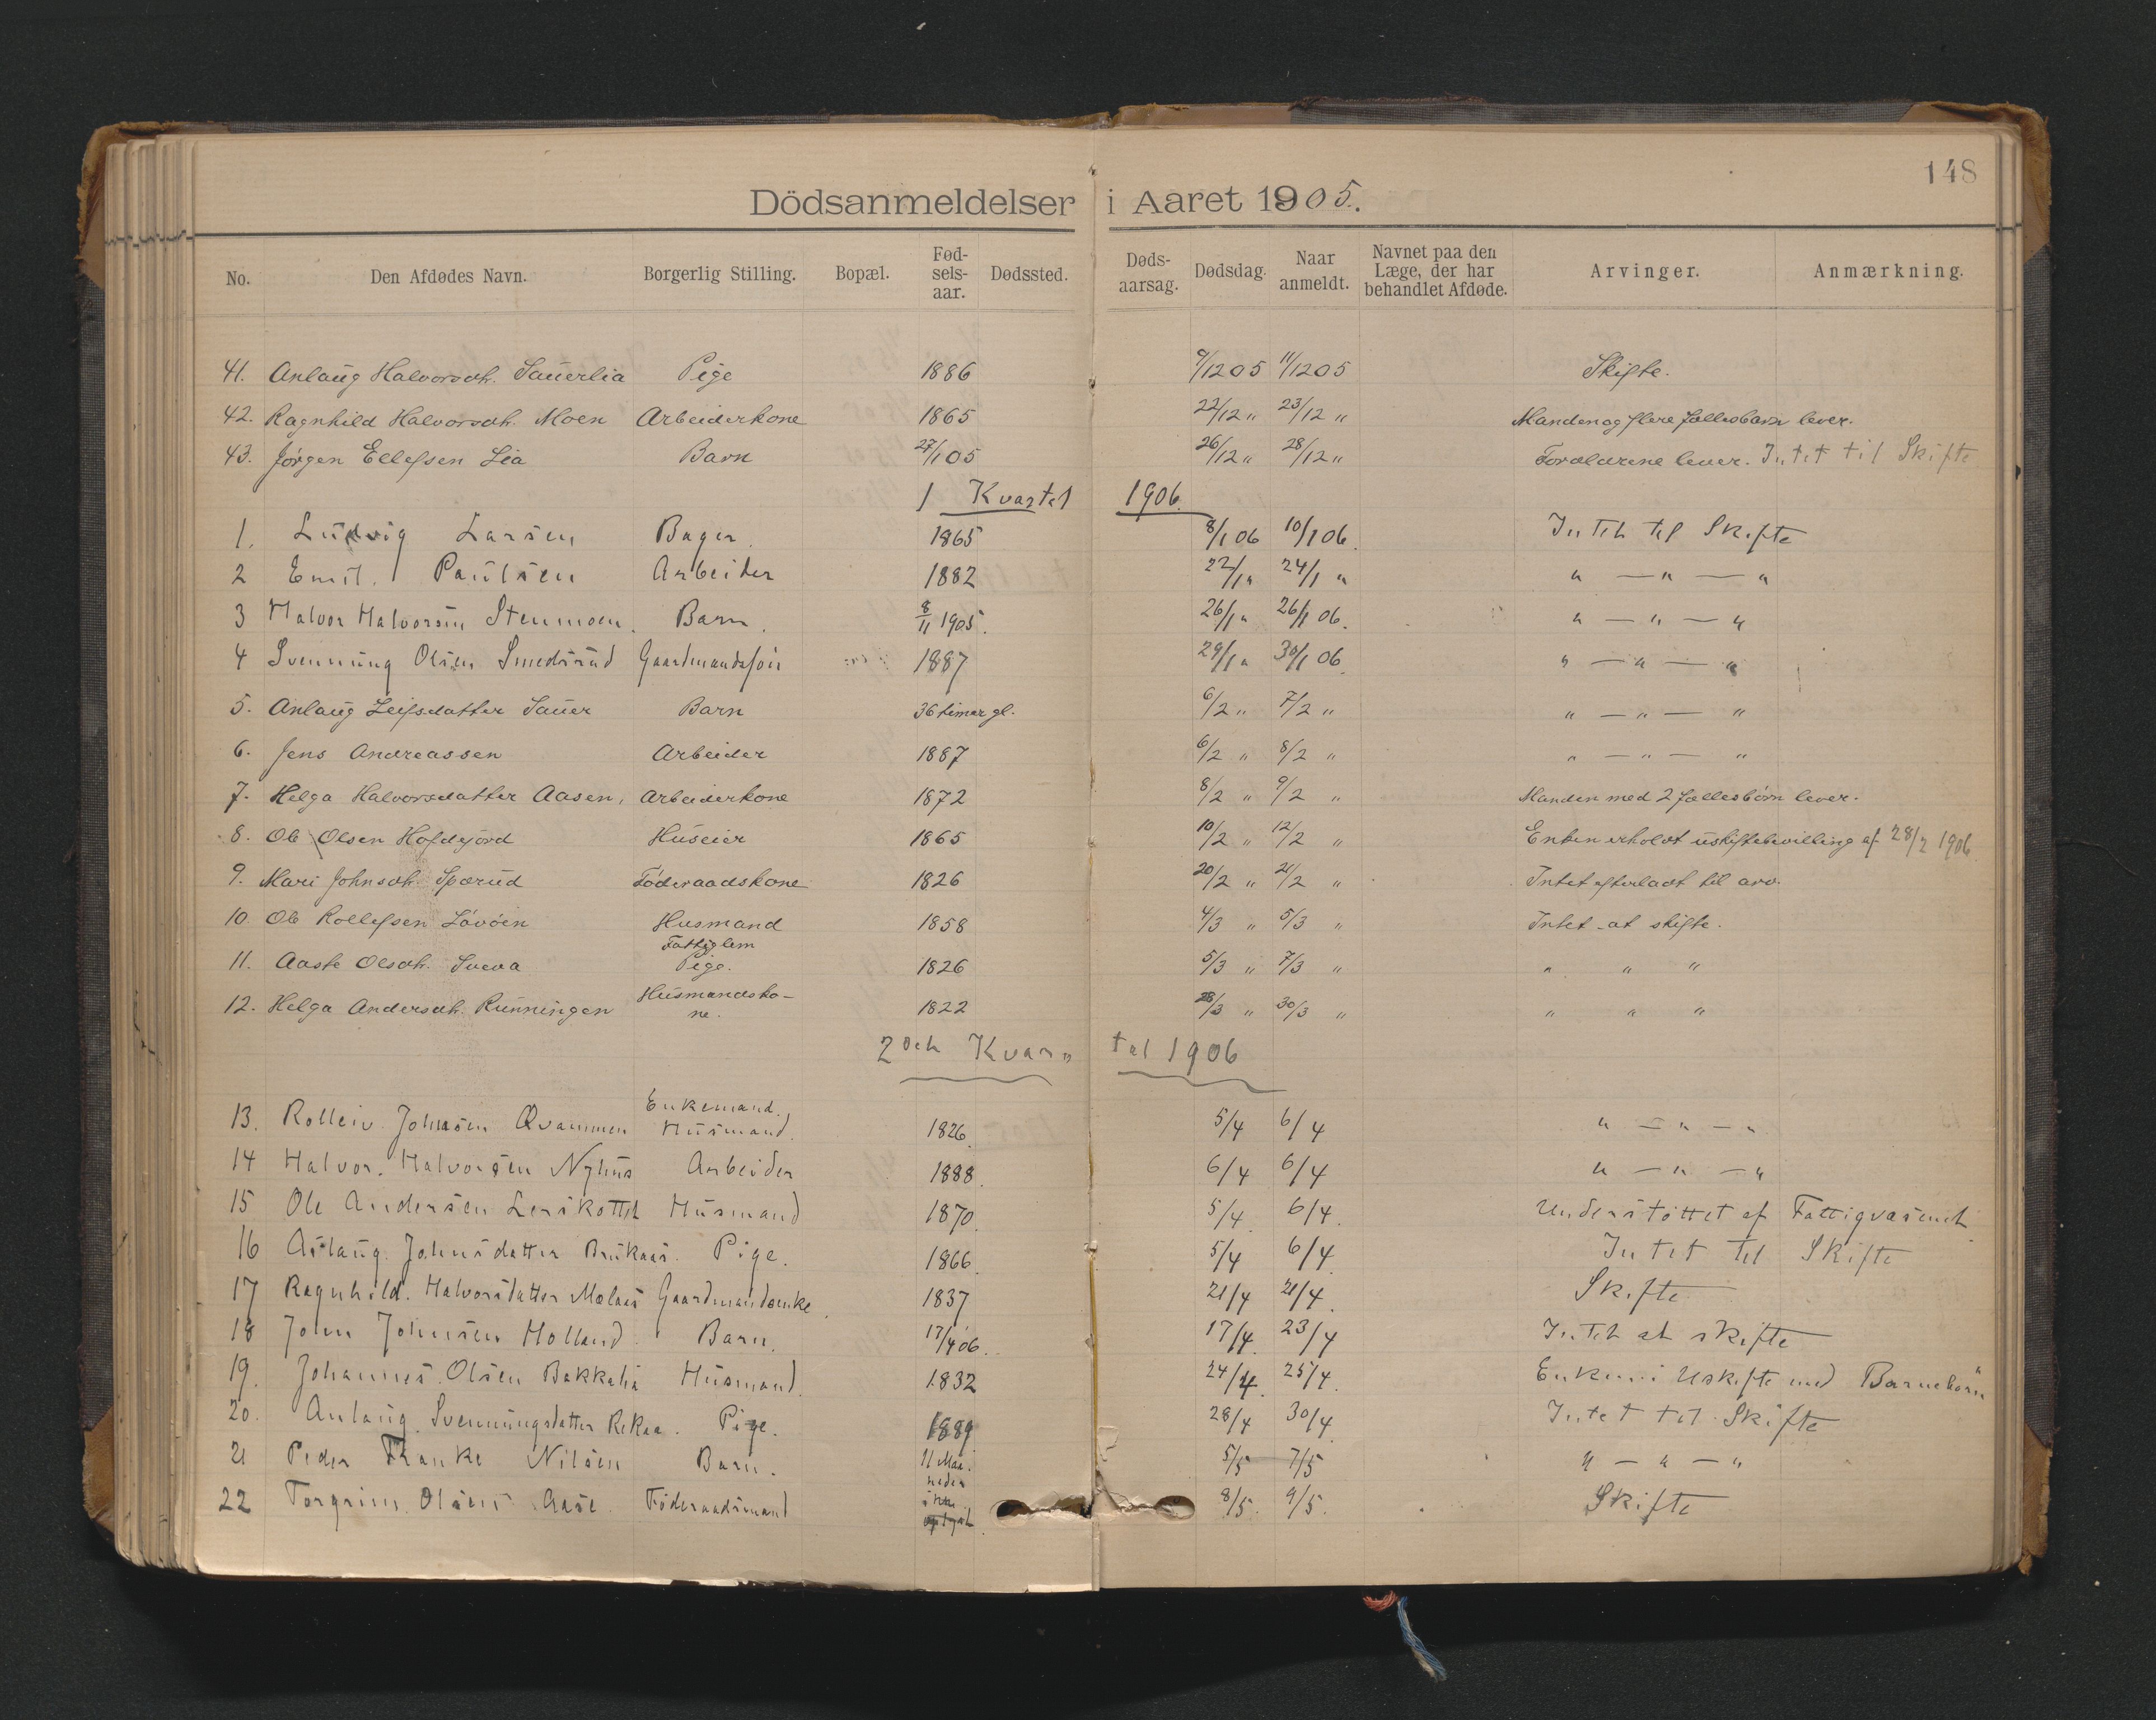 148
Dödsanmeldelser i Aaret 1905.
No. Den Afdødes Navn. Borgerlig Stilling. Bopæl. Fød-sels-aar. Dødssted. Døds-aarsag. Dødsdag. Naar anmeldt. Navnet paa den Læge, der har behandlet Afdøde. Arvinger. Anmærkning.
41. Anlaug Halvorsdh. Sauerlia Pige 1886 9/12 05 11/12 05 Skifte.
42. Ragnhild Halvorsdh. Moen Arbeiderkone 1865 22/12 " 23/12 " Manden og flere fællesbarn lever.
43. Jörgen Ellefsen Lia Barn 27/1 05 26/12 " 28/12 " Forældrene lever. Intet til Skifte
1 Kvartal 1906.
1. Ludvig Larsen Bager. 1865 8/1 06 10/1 06. Intet til Skifte
2 Emil. Paulsen Arbeider 1882 22/1 " 24/1 " " — " — "
3 Halvor Halvorsen Stenmoen. Barn. 8/11 1905. 26/1 " 26/1 06. " — " — "
4 Svenning Olsen Smedsrud Gaardmandssön 1887 29/1 " 30/1 06. " — " — "
5. Anlaug Leifsdatter Sauer Barn 36 timar gl. 6/2 " 7/2 " " — " — "
6. Jens Andreassen Arbeider 1887 6/2 " 8/2 " " — " — "
7. Helga Halvorsdatter Aasen, Arbeiderkone 1872 8/2 " 9/2 " Manden med 2 fællesbörn lever.
8. Ole Olsen Hofdejord Huseier 1865 10/2 " 12/2 " Enken erholdt uskiftebevilling af 28/2 1906
9. Mari Johnsdh. Sporud Föderaadskone 1826 20/2 " 21/2 " Intet efterladt til arv.
10. Ole Rollefsen Lövöen Husmand 1858 4/3 " 5/3 " Intet at skifte.
11. Aaste Olsdh. Sveva Fattiglem Pige. 1826 5/3 " 7/3 " " " "
12. Helga Andersdh. Rünningen Husmandsko-ne. 1822 28/3 " 30/3 " " " "
2det Kvar" tal 1906
13. Rolleiv Johnsen Qvammen Enkemand. Husmand. 1826. 5/4 6/4 " — " — "
14 Halvor. Halvorsen Nyhus Arbeider 1888. 6/4 6/4 " — " — "
15 Ole Andersen Lerskottet Husmand 1870. 5/4. 6/4. Understöttet af Fattigvæsenet.
16 Aslaug. Johnsdatter Brukaas. Pige. 1866. 5/4 6/4. Intet til Skifte
17 Ragnhild. Halvorsdatter Molaas Gaardmandsenke. 1837 21/4 21/4. Skifte
18 John Johnsen Holland. Barn. 17/4 06. 17/4. 23/4 Intet at skifte
19. Johannes. Olsen Bakkalia Husmand. 1832 24/4. 25/4. Enken i Uskifte med Barnebörn
20. Anlaug Svenningsdatter Rekaa. Pige. 1889 28/4 30/4. Intet til Skifte
21 Peder Franke Nilsen Barn. 11 Maa-neder 5/5 7/5 " — " — "
22 Torgrim Olsen Aase. Föderaadsmand ikke oplyst. 8/5. 9/5. Skifte